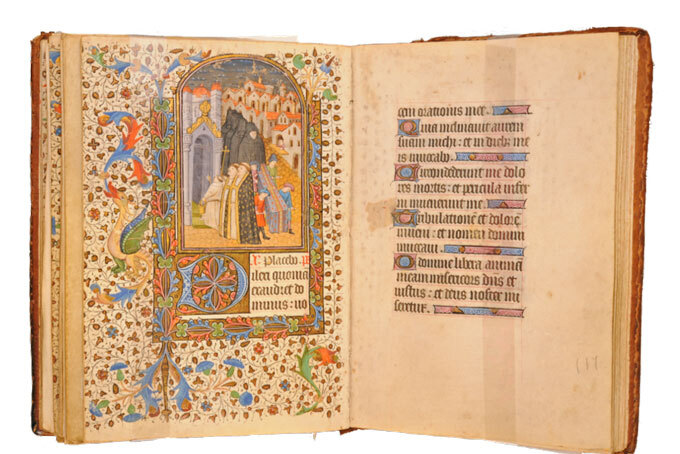 Placebo.
ilexi quoniā
exaudiet do
minus: uo
cem orationis mee.
Quia inclinauit aurem
suam michi: et in dieb; me
is inuocabo.
Circondederunt me dolo
res mortis: et pericula infer
ni inuenerunt me.
Tribulationē et dolorē
inueni: et nomen domini
inuocaui.
O domine libera animā
meam misericors dn̄s et
iustus: et deus noster mi
seretur.